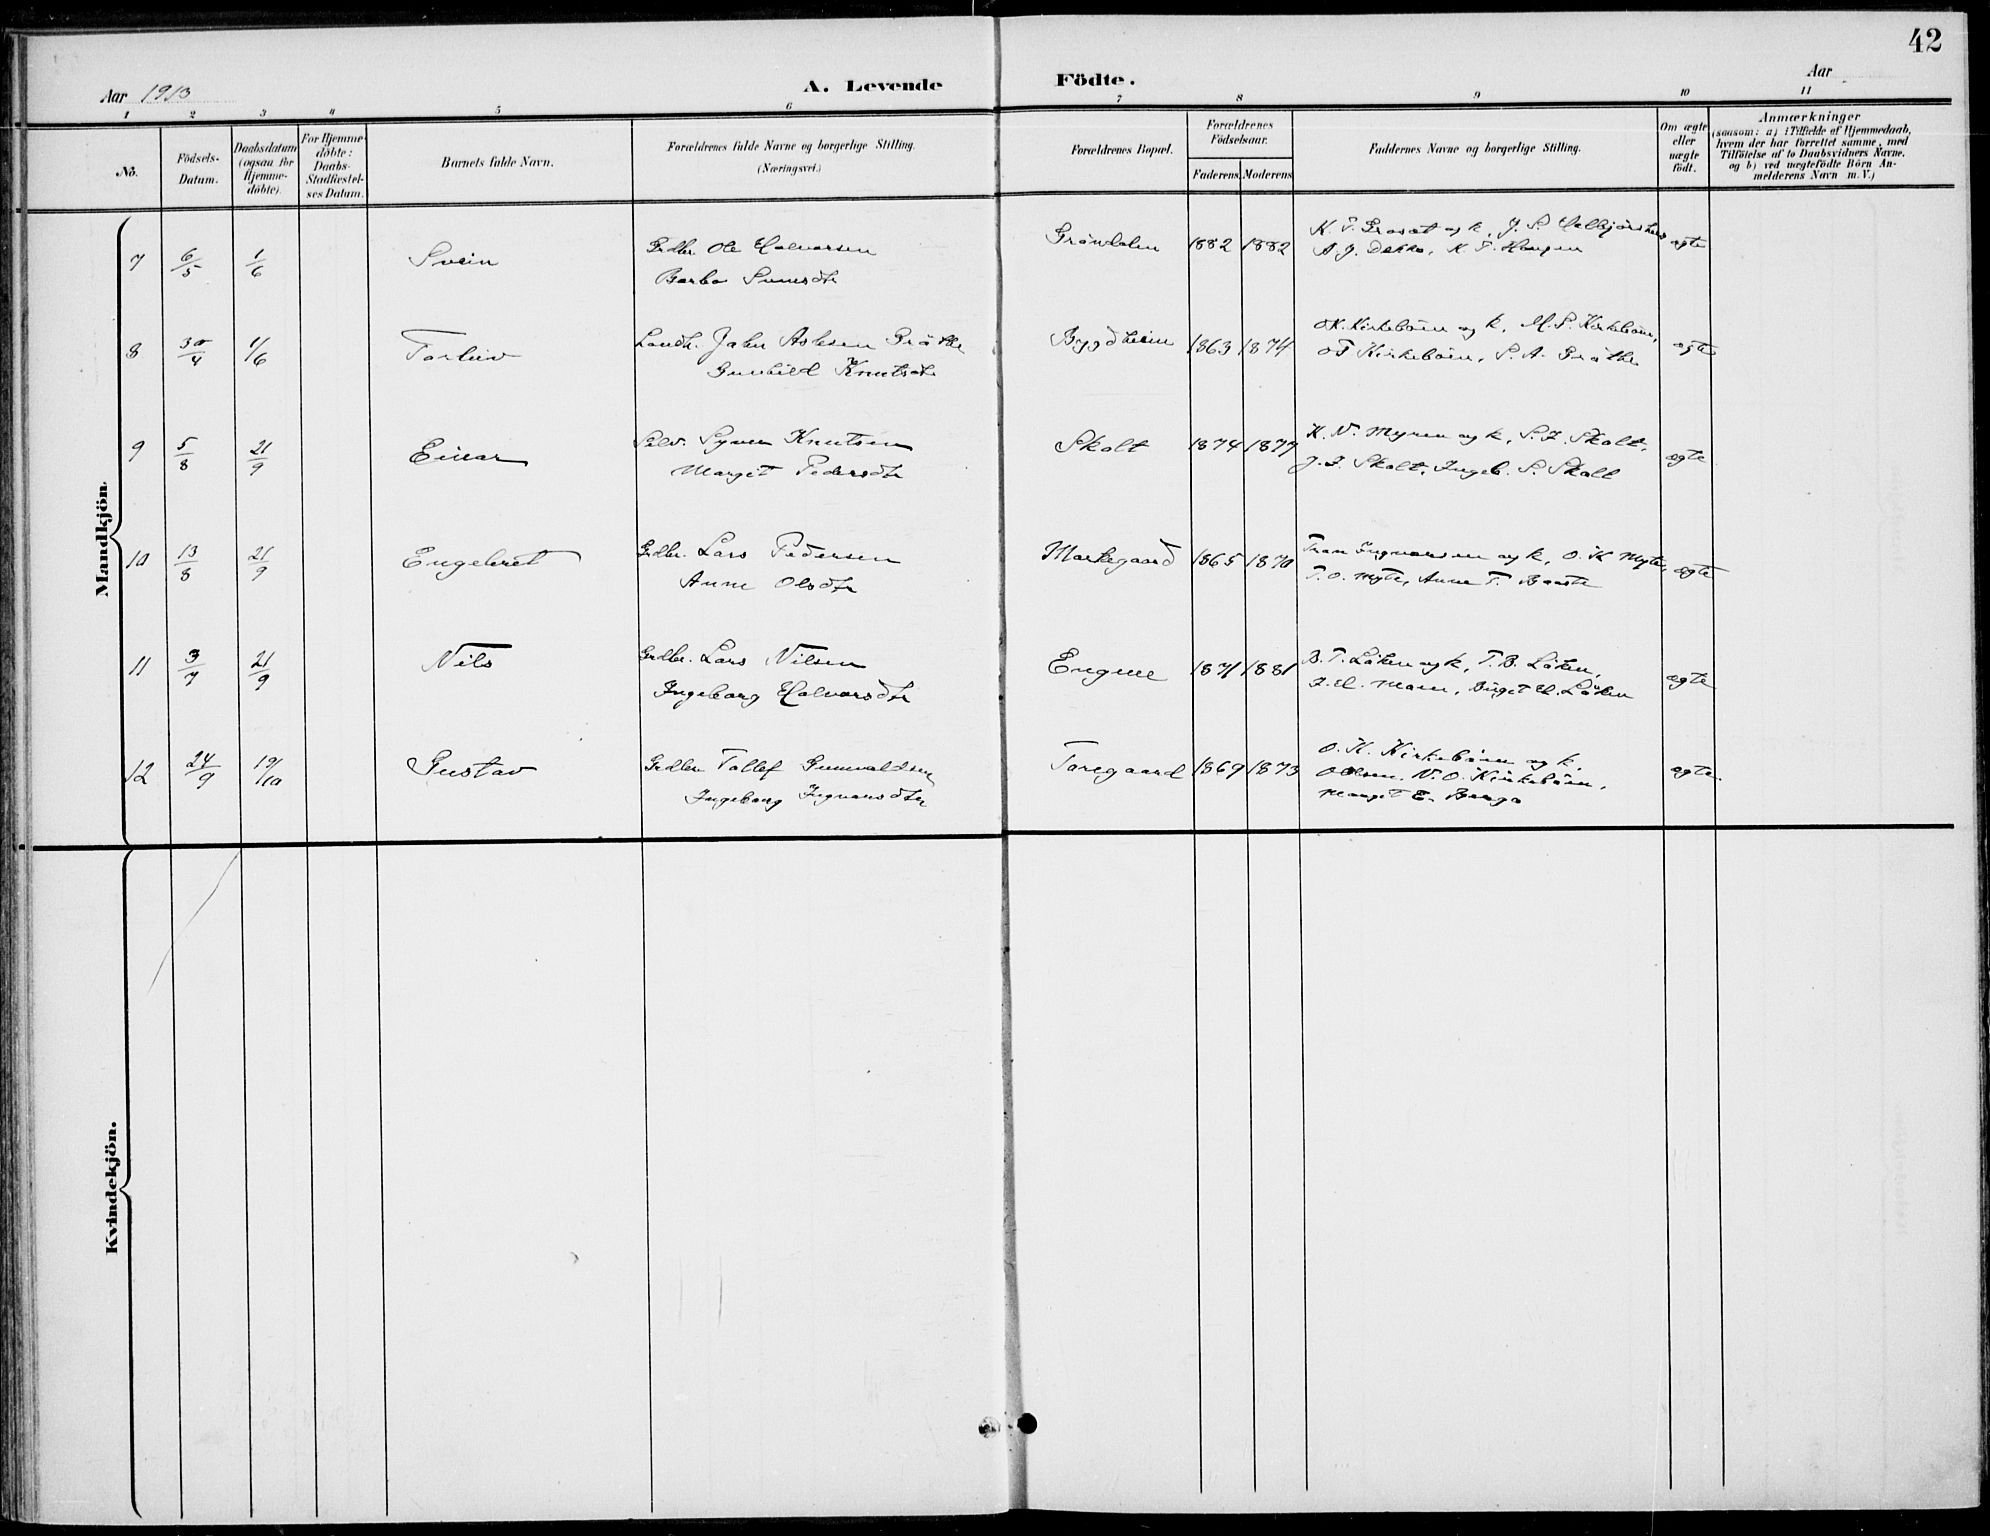 42
Aar 1913
A. Levende Födte.
Aar
1 2 3 4 5 6 7 8 9 10 11
No.
Födsels-Datum.
Daabsdatum (ogsaa for Hjemme-döbte).
For Hjemme-döbte: Daabs-Stadfæstel-ses Datum.
Barnets fulde Navn.
Forældrenes fulde Navne og borgerlige Stilling. (Næringsvei.)
Forældrenes Bopæl.
Forældrenes Födselsaar.
Faderens. Moderens.
Faddernes Navne og borgerlige Stilling.
Om ægte eller uægte födt.
Anmærkninger
(saasom: a) i Tilfælde af Hjemmedaab,
hvem der har forrettet samme, med
Tilföielse af to Daabsvidners Navne.
og b) ved uægtefödte Börn An-
melderens Navn m. V.)
Mandkjön.
7 6/5 1/6 Svein Grdbr. Ole Halvorsen Gröndalen 1882 1882 K. T. og k, J. S. ægte
Barbo A. J. Dekko, K. T. Haugen
8 30/4 1/6 Torleiv Landh. John Aslesen Gröthe Bygdheim 1863 1874 O. K. Kirkeböen og k, M. S. Kirkeböen, ægte
Gunhild Knutsdtr O T Kirkeböen, S. A. Gröthe
9 5/8 21/9 Einar Selv. Syver Knutsen Skolt 1874 1877 K. N. Myren og k, S. J. Skolt, ægte
Margit Pedersdtr J. J. Skolt, Ingeb. S. Skolt
10 13/8 21/9 Engebret Grdbr. Lars Pedersen Markegaard 1865 1870 Ingvarsen og k, O. K Myte, ægte
Anne Olsdtr T. O. Myte, Anne T.
11 3/7 21/9 Nils Grdbr. Lars Nilsen Engene 1871 1881 B. T. Löken og k, T. B. Löken, ægte
Ingeborg Halvorsdtr Birgit H. Löken
12 24/9 19/10 Gustav Grdbr Tollef Gunvaldsen Toregaard 1869 1873 O. K. Kirkeböen og k, ægte.
Ingeborg Ingvarsdtr N. O. Kirkeböen,
Margit E. Berge
Kvindekjön.